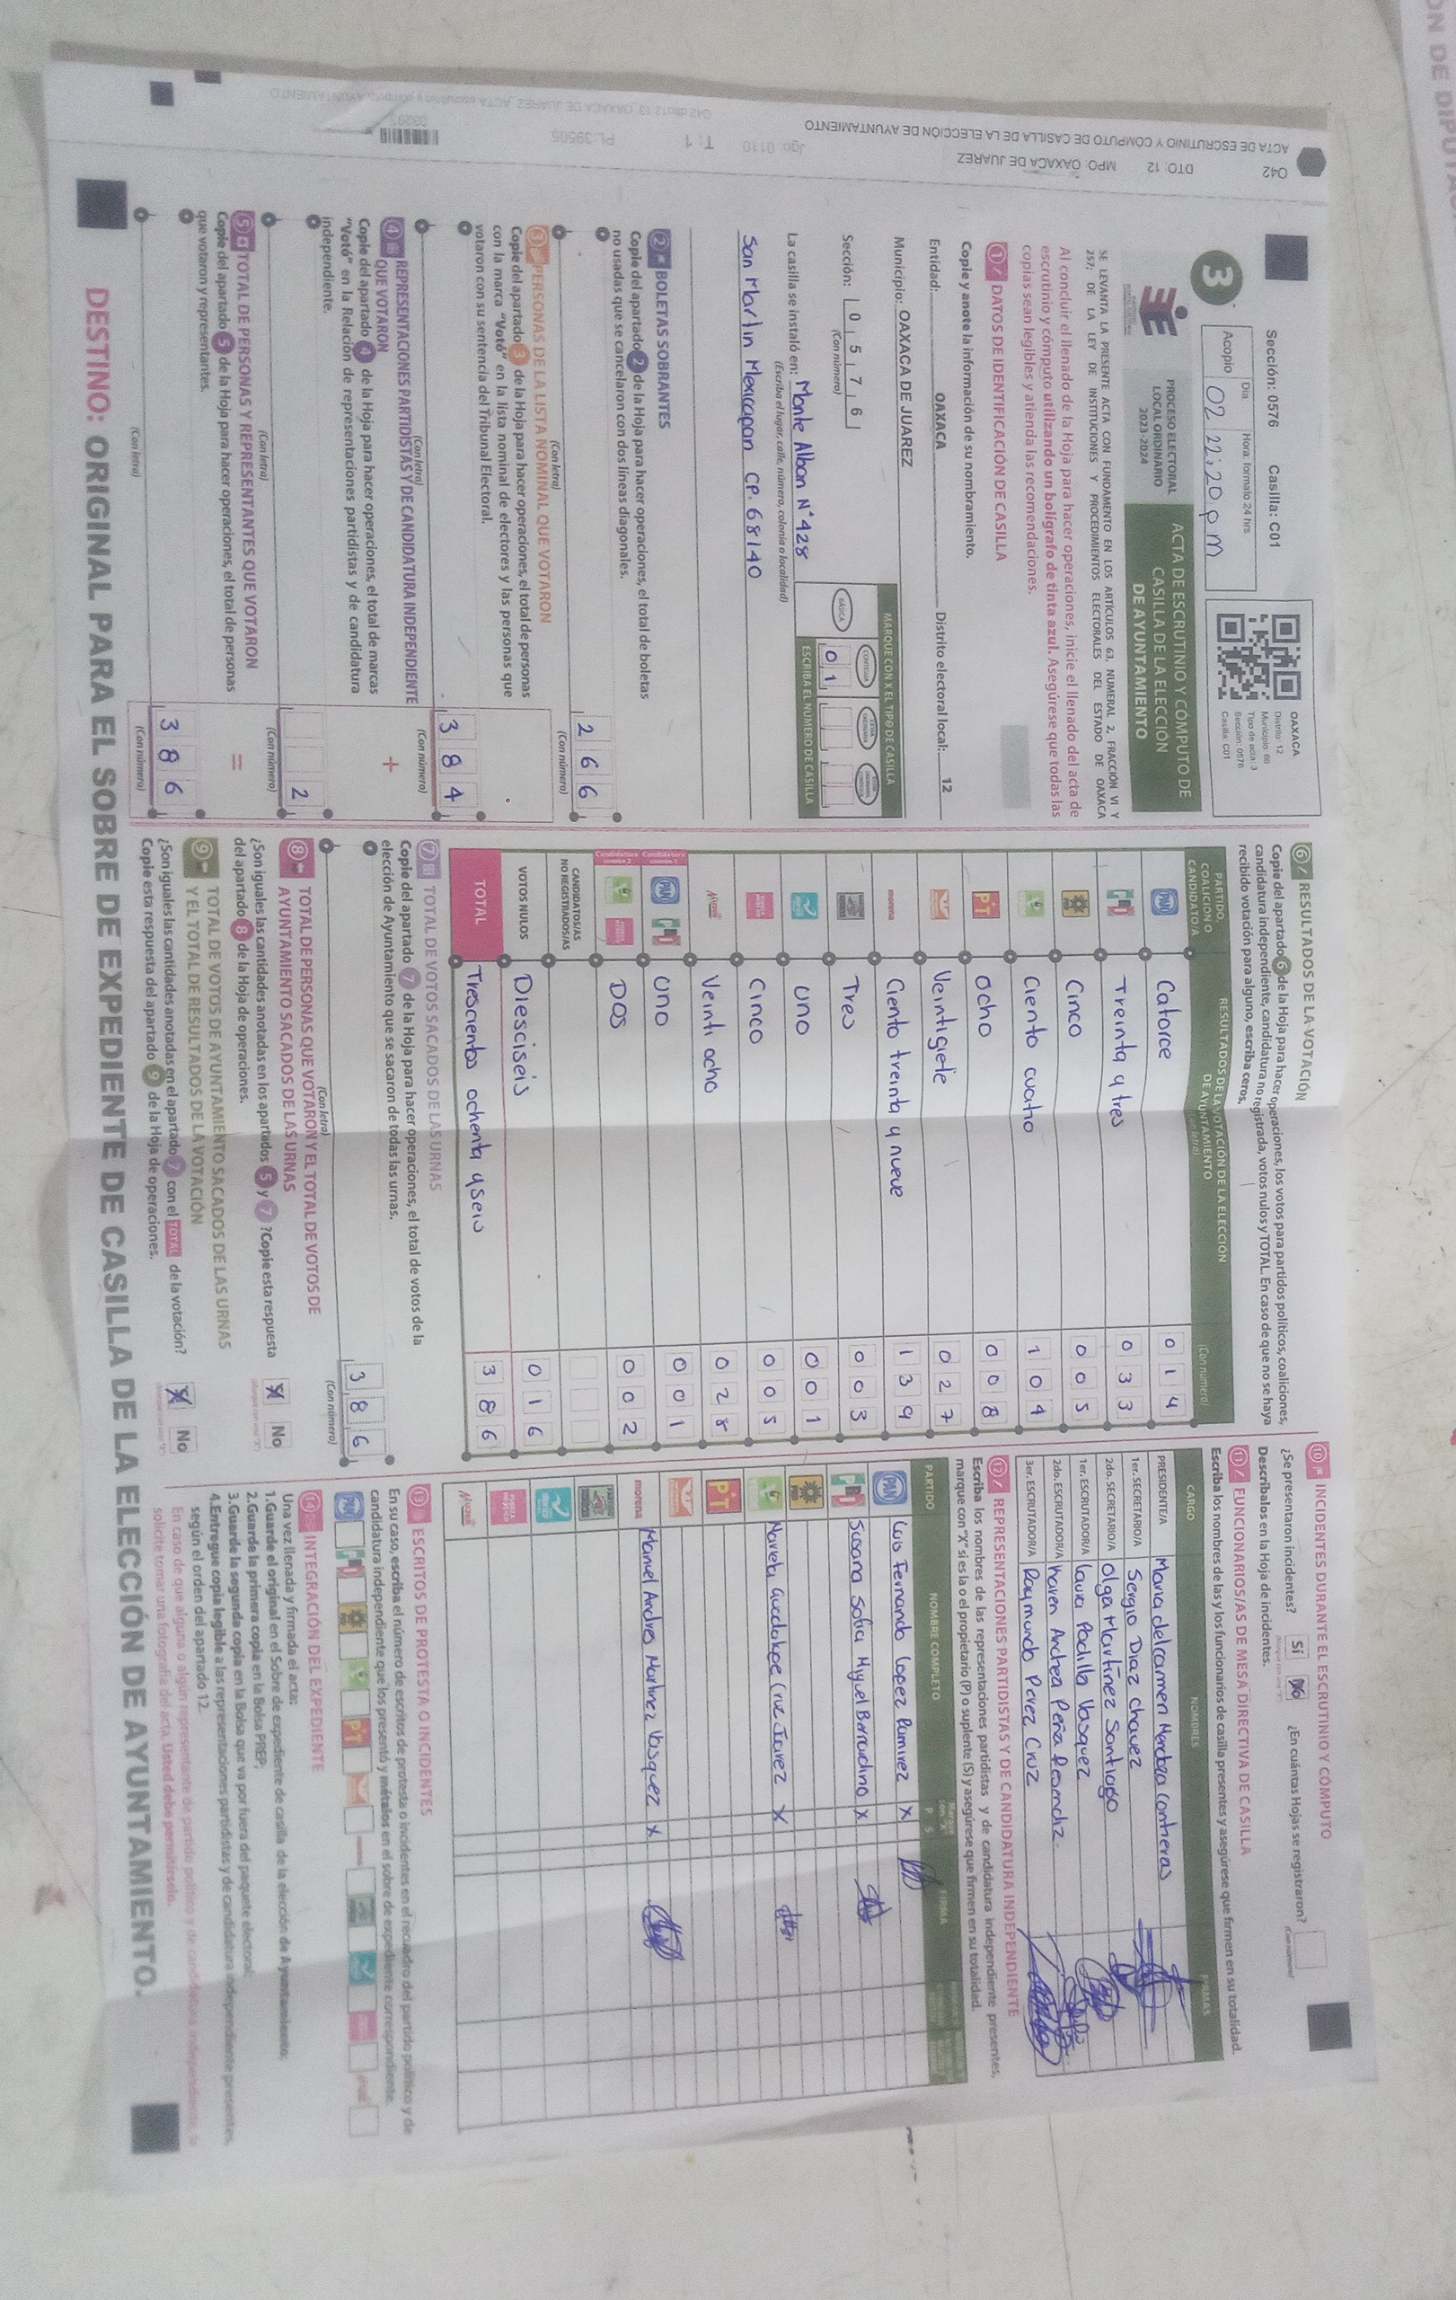 Sección: 0576 Casilla: C01
Día Hora: formato 24 hrs
Acopio 02 22:20 pm
3
OAXACA
Distrito: 12
Tipo de acta: 3
Sección: 0576
Casilla: C01
PROCESO ELECTORAL
LOCAL ORDINARIO
2023-2024
ACTA DE ESCRUTINIO Y CÓMPUTO DE
CASILLA DE LA ELECCIÓN
DE AYUNTAMIENTO
SE LEVANTA LA PRESENTE ACTA CON FUNDAMENTO EN LOS ARTÍCULOS 63, NUMERAL 2, FRACCIÓN VI Y
257; DE LA LEY DE INSTITUCIONES Y PROCEDIMIENTOS ELECTORALES DEL ESTADO DE OAXACA
Al concluir el llenado de la Hoja para hacer operaciones, inicie el llenado del acta de
escrutinio y cómputo utilizando un bolígrafo de tinta azul. Asegúrese que todas las
copias sean legibles y atienda las recomendaciones.
1 DATOS DE IDENTIFICACIÓN DE CASILLA
Copie y anote la información de su nombramiento.
Entidad: OAXACA Distrito electoral local: 12
Municipio: OAXACA DE JUAREZ
MARQUE CON X EL TIPO DE CASILLA
Sección: 0 5 7 6
(Con número)
BÁSICA
0 1
ESCRIBA EL NÚMERO DE CASILLA
La casilla se instaló en: Monte Alban N° 428
(Escriba el lugar, calle, número, colonia o localidad)
San Martin Mexicapan CP. 68140
2 BOLETAS SOBRANTES
Copie del apartado 2 de la Hoja para hacer operaciones, el total de boletas
no usadas que se cancelaron con dos líneas diagonales.
2 6 6
(Con letra) (Con número)
3 PERSONAS DE LA LISTA NOMINAL QUE VOTARON
Copie del apartado 3 de la Hoja para hacer operaciones, el total de personas
con la marca "Votó" en la lista nominal de electores y las personas que
votaron con su sentencia del Tribunal Electoral.
3 8 4
(Con letra) (Con número)
4 REPRESENTACIONES PARTIDISTAS Y DE CANDIDATURA INDEPENDIENTE
QUE VOTARON
+
Copie del apartado 4 de la Hoja para hacer operaciones, el total de marcas
"Votó" en la Relación de representaciones partidistas y de candidatura
independiente.
2
(Con letra) (Con número)
5 TOTAL DE PERSONAS Y REPRESENTANTES QUE VOTARON
=
Copie del apartado 5 de la Hoja para hacer operaciones, el total de personas
que votaron y representantes.
3 8 6
(Con letra) (Con número)
6 RESULTADOS DE LA VOTACIÓN
Copie del apartado 6 de la Hoja para hacer operaciones, los votos para partidos políticos, coaliciones,
candidatura independiente, candidatura no registrada, votos nulos y TOTAL. En caso de que no se haya
recibido votación para alguno, escriba ceros.
PARTIDO,
COALICIÓN O
CANDIDATO/A
RESULTADOS DE LA VOTACIÓN DE LA ELECCIÓN
DE AYUNTAMIENTO
(Con letra) (Con número)
PAN Catorce 0 1 4
PRI Treinta y tres 0 3 3
Cinco 0 0 5
Ciento cuatro 1 0 4
PT Ocho 0 0 8
Veintisiete 0 2 7
morena Ciento treinta y nueve 1 3 9
Tres 0 0 3
Uno 0 0 1
Cinco 0 0 5
Mujer Veinti ocho 0 2 8
PAN PRI Uno 0 0 1
Dos 0 0 2
CANDIDATOS/AS
NO REGISTRADOS/AS
VOTOS NULOS Diesciseis 0 1 6
TOTAL Trescientos ochenta y seis 3 8 6
7 TOTAL DE VOTOS SACADOS DE LAS URNAS
Copie del apartado 7 de la Hoja para hacer operaciones, el total de votos de la
elección de Ayuntamiento que se sacaron de todas las urnas.
3 8 6
(Con letra) (Con número)
8 TOTAL DE PERSONAS QUE VOTARON Y EL TOTAL DE VOTOS DE
AYUNTAMIENTO SACADOS DE LAS URNAS
¿Son iguales las cantidades anotadas en los apartados 5 y 7 ? Copie esta respuesta
del apartado 8 de la Hoja de operaciones.
X No
9 TOTAL DE VOTOS DE AYUNTAMIENTO SACADOS DE LAS URNAS
Y EL TOTAL DE RESULTADOS DE LA VOTACIÓN
¿Son iguales las cantidades anotadas en el apartado 7 con el TOTAL de la votación?
Copie esta respuesta del apartado 9 de la Hoja de operaciones.
X No
10 INCIDENTES DURANTE EL ESCRUTINIO Y CÓMPUTO
¿Se presentaron incidentes? Sí No ¿En cuántas Hojas se registraron?
(Con número)
Descríbalos en la Hoja de incidentes.
11 FUNCIONARIOS/AS DE MESA DIRECTIVA DE CASILLA
Escriba los nombres de las y los funcionarios de casilla presentes y asegúrese que firmen en su totalidad.
CARGO NOMBRES FIRMAS
PRESIDENTE/A Maria del carmen Mendoza Contreras
1er. SECRETARIO/A Sergio Diaz Chavez
2do. SECRETARIO/A Olga Martinez Santiago
1er. ESCRUTADOR/A Laura Padilla Vasquez
2do. ESCRUTADOR/A Karen Andrea Peña
3er. ESCRUTADOR/A Raymundo Perez Cruz
12 REPRESENTACIONES PARTIDISTAS Y DE CANDIDATURA INDEPENDIENTE
Escriba los nombres de las representaciones partidistas y de candidatura independiente presentes,
marque con "X" si es la o el propietario (P) o suplente (S) y asegúrese que firmen en su totalidad.
PARTIDO NOMBRE COMPLETO P S FIRMA
PAN Luis Fernando Lopez Ramirez X
PRI Susana Sofia Miguel X
Guadalupe Cruz X
PT
morena Manuel Andres Martinez Vasquez X
Mujer
13 ESCRITOS DE PROTESTA O INCIDENTES
En su caso, escriba el número de escritos de protesta o incidentes en el recuadro del partido político y de
candidatura independiente que los presentó y métalos en el sobre de expediente correspondiente.
14 INTEGRACIÓN DEL EXPEDIENTE
Una vez llenada y firmada el acta:
1.Guarde el original en el Sobre de expediente de casilla de la elección de Ayuntamiento;
2.Guarde la primera copia en la Bolsa PREP;
3.Guarde la segunda copia en la Bolsa que va por fuera del paquete electoral;
4.Entregue copia legible a las representaciones partidistas y de candidatura independiente presentes,
según el orden del apartado 12.
En caso de que alguna o algún representante de partido político y de candidatura independiente, le
solicite tomar una fotografía del acta, Usted debe permitírselo.
DESTINO: ORIGINAL PARA EL SOBRE DE EXPEDIENTE DE CASILLA DE LA ELECCIÓN DE AYUNTAMIENTO.
ACTA DE ESCRUTINIO Y CÓMPUTO DE CASILLA DE LA ELECCIÓN DE AYUNTAMIENTO
042 DTO: 12 MPO: OAXACA DE JUAREZ
Jgo: 0110 T: 1 PL-39505